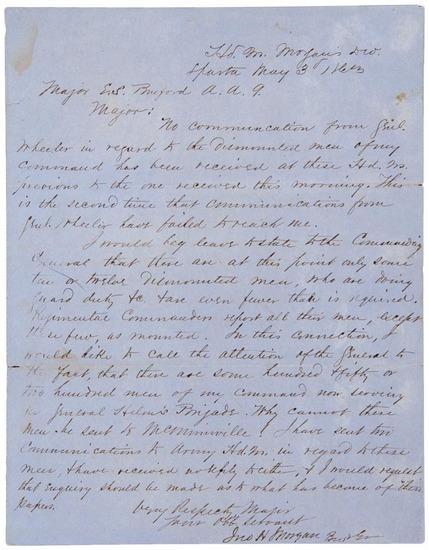 Hd. Qrs. Morgan's Div.
Sparta May 3d 1863
Major E.S. Buford A. A. G.
Major:
No communcation from Genl.
Wheeler in regard to the dismounted men of my
command has been received at these Hd. Qrs.
previous to the one received this morning. This
is the second time that communications from
Genl. Wheeler have failed to reach me.
I would beg leave to state to the Commanding
General that there are at this point only some
ten or twelve dismounted men, who are doing
guard duty &c. & are even fewer than is required.
Regimental Commanders report all their men, except
these few, as mounted. In this connection, I
would like to call the attention of the General to
the fact, that there are some hundred & fifty or
two hundred men of my command now serving
in General Helm's Brigade. Why cannot these
men be sent to McMinnville? I have sent two
Communications to Army Hd. Qrs. in regard to these
men, & have received no reply to either, & I would request
that enquiry should be made as to what has become of these
papers.
Very Respectfy Major
Your Obt. Servant
Jno H Morgan Brig Gen